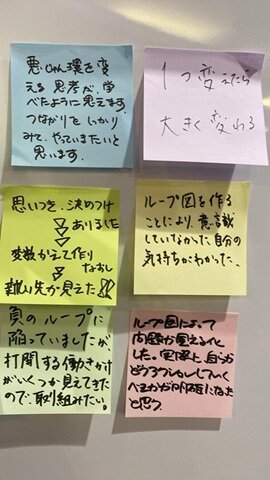 悪じゅん環を変
える思考が、学
べたように思えます
つながりをしっかり
みて、やっていきたいと
思います。
1つ変えたら
大きく変わる
思いつき、決めつけ
ありました
変数かえて作り
なおし
戦い先が見えた!!
ループ図を作る
ことにより、意識
していなかった自分の
気持ちがわかった。
負のループに
陥っていましたが、
打開する働きかけ
がいくつか見えてきた
ので、取り組みたい。
ループ図によって
問題が見える化
した。実際に自分が
どうアクションしていく
べきかが明確になった
と思う。